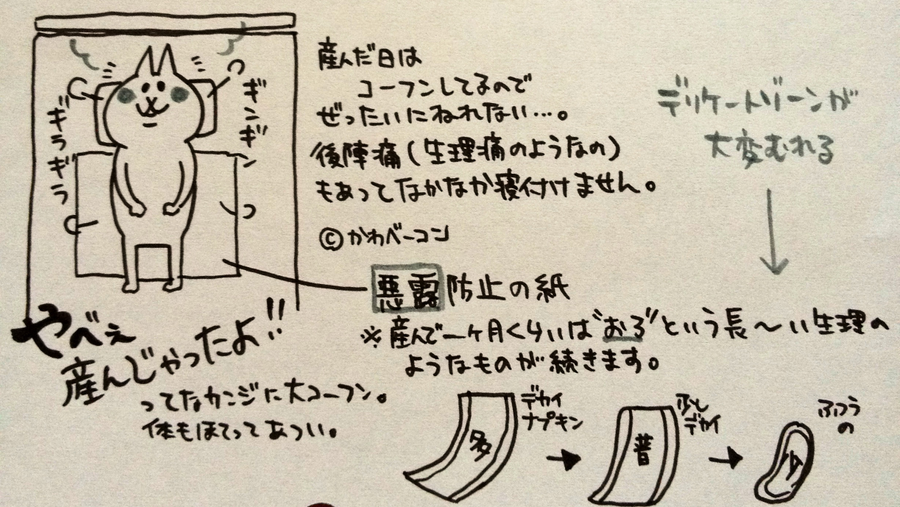 ギラギラ
ギンギン
産んだ日は
コーフンしてるので
ぜったいにねれない…。
後陣痛(生理痛のようなの)
もあってなかなか寝付けません。
©かわベーコン
デリケートゾーンが
大変むれる
悪露防止の紙
※産んで一ヶ月くらいは"おろ"という長〜い生理の
ようなものが続きます。
やべぇ
産んじゃったよ!!
ってなカンジに大コーフン。
体もほてってあつい。
デカイ
ナプキン
多
少し
デカイ
普
ふつう
の
少